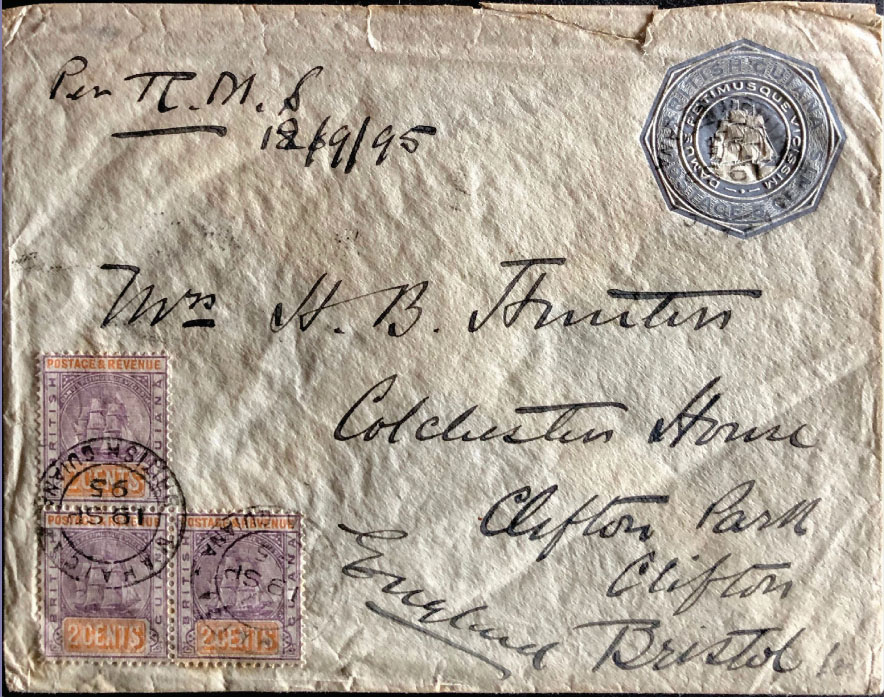 Per R.M.S
18/9/95
BRITISH GUIANA
POSTAGE
DAMUS PETIMUSQUE VICISSIM
Mrs H. B. Hunter
Colchester House
Clifton Park
Clifton
Bristol
England
POSTAGE & REVENUE
BRITISH
GUIANA
2 CENTS
BRITISH GUIANA
19 SP
95
POSTAGE & REVENUE
BRITISH
GUIANA
2 CENTS
POSTAGE & REVENUE
BRITISH
GUIANA
2 CENTS
GUIANA
SP